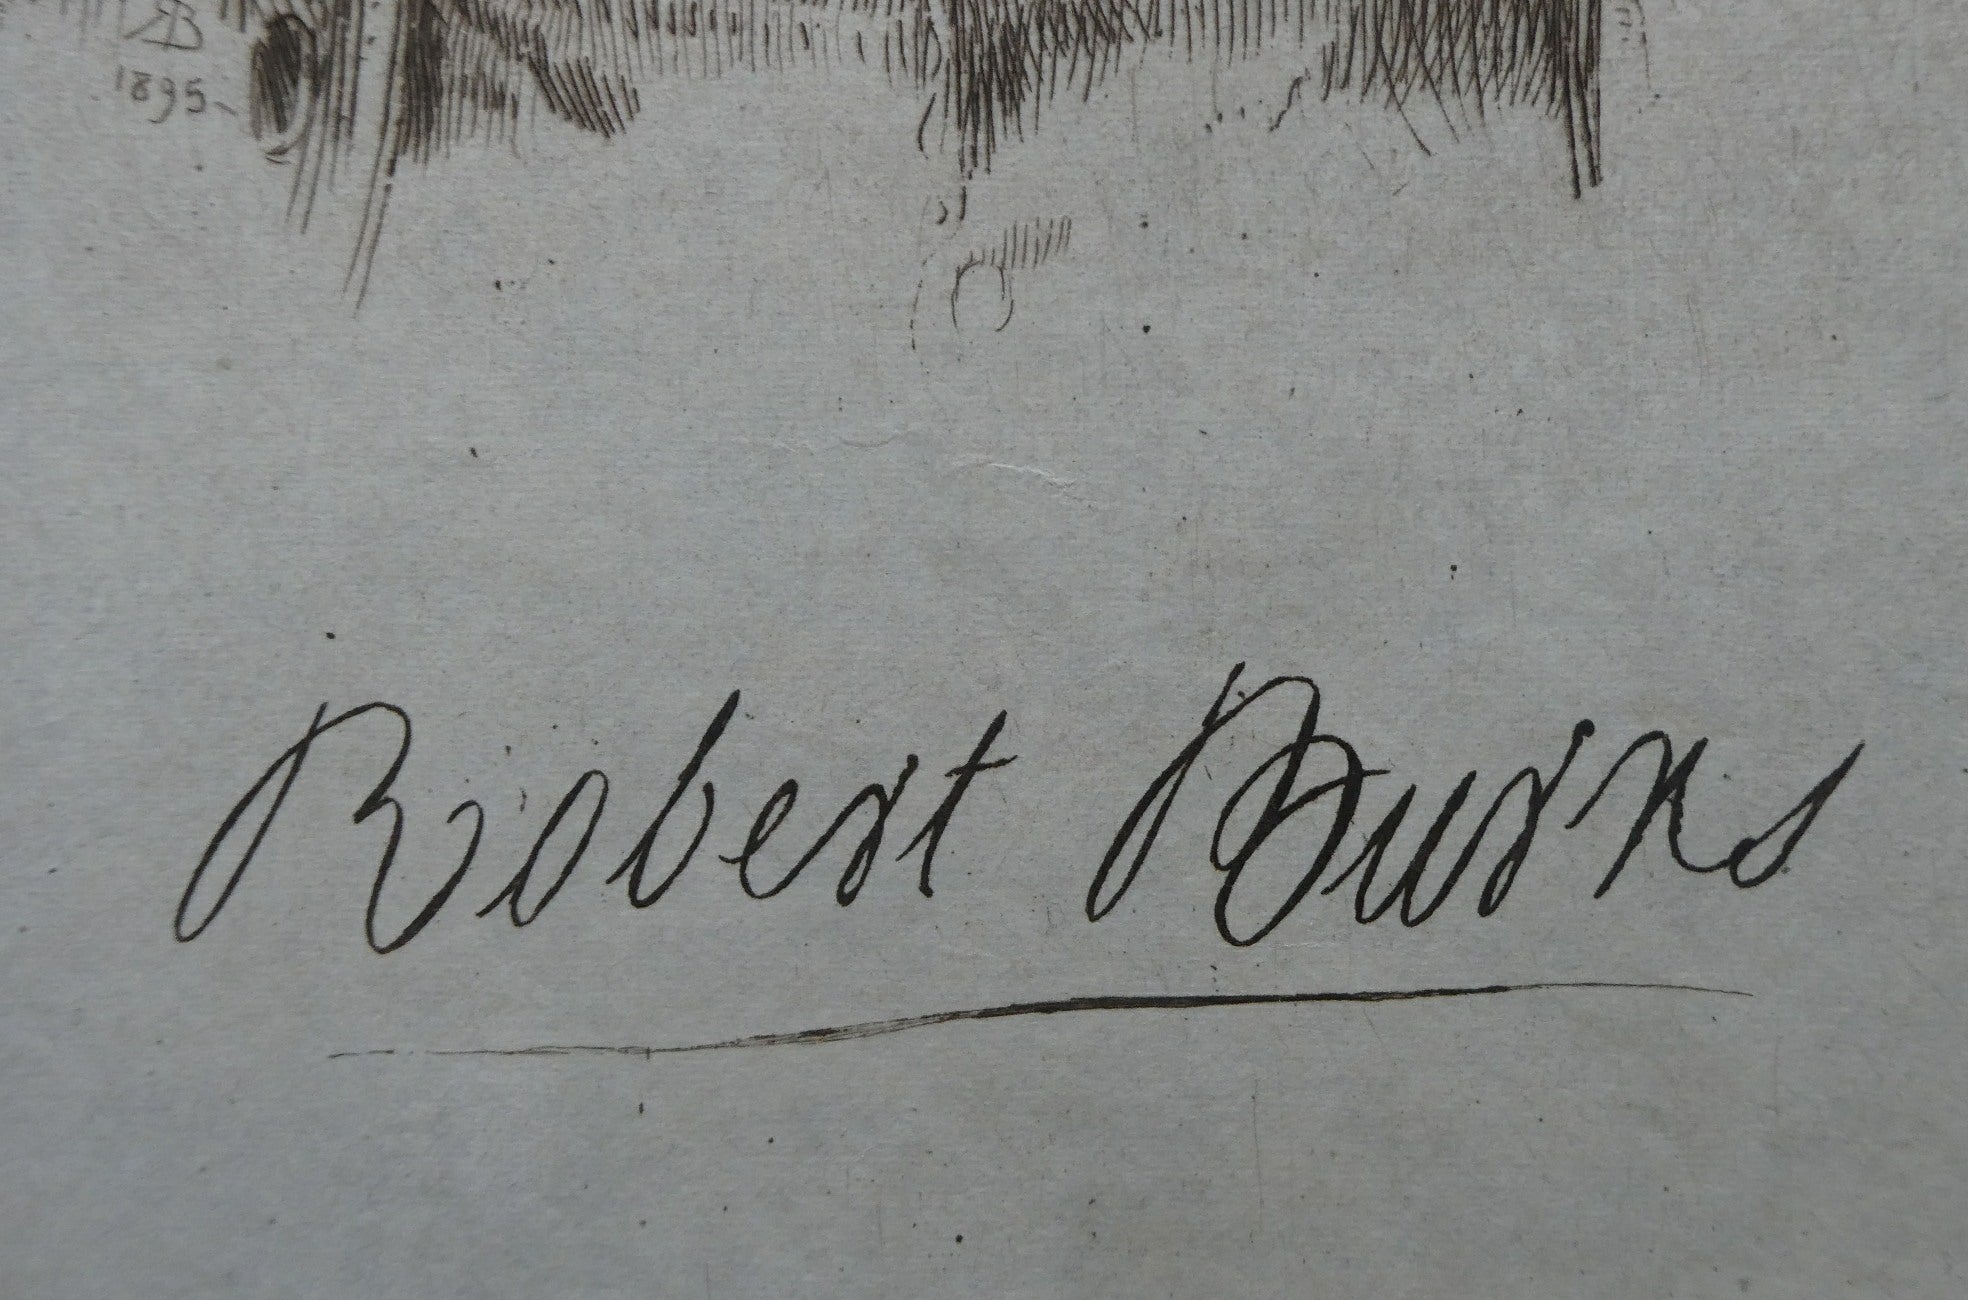 1895
Robert Burns